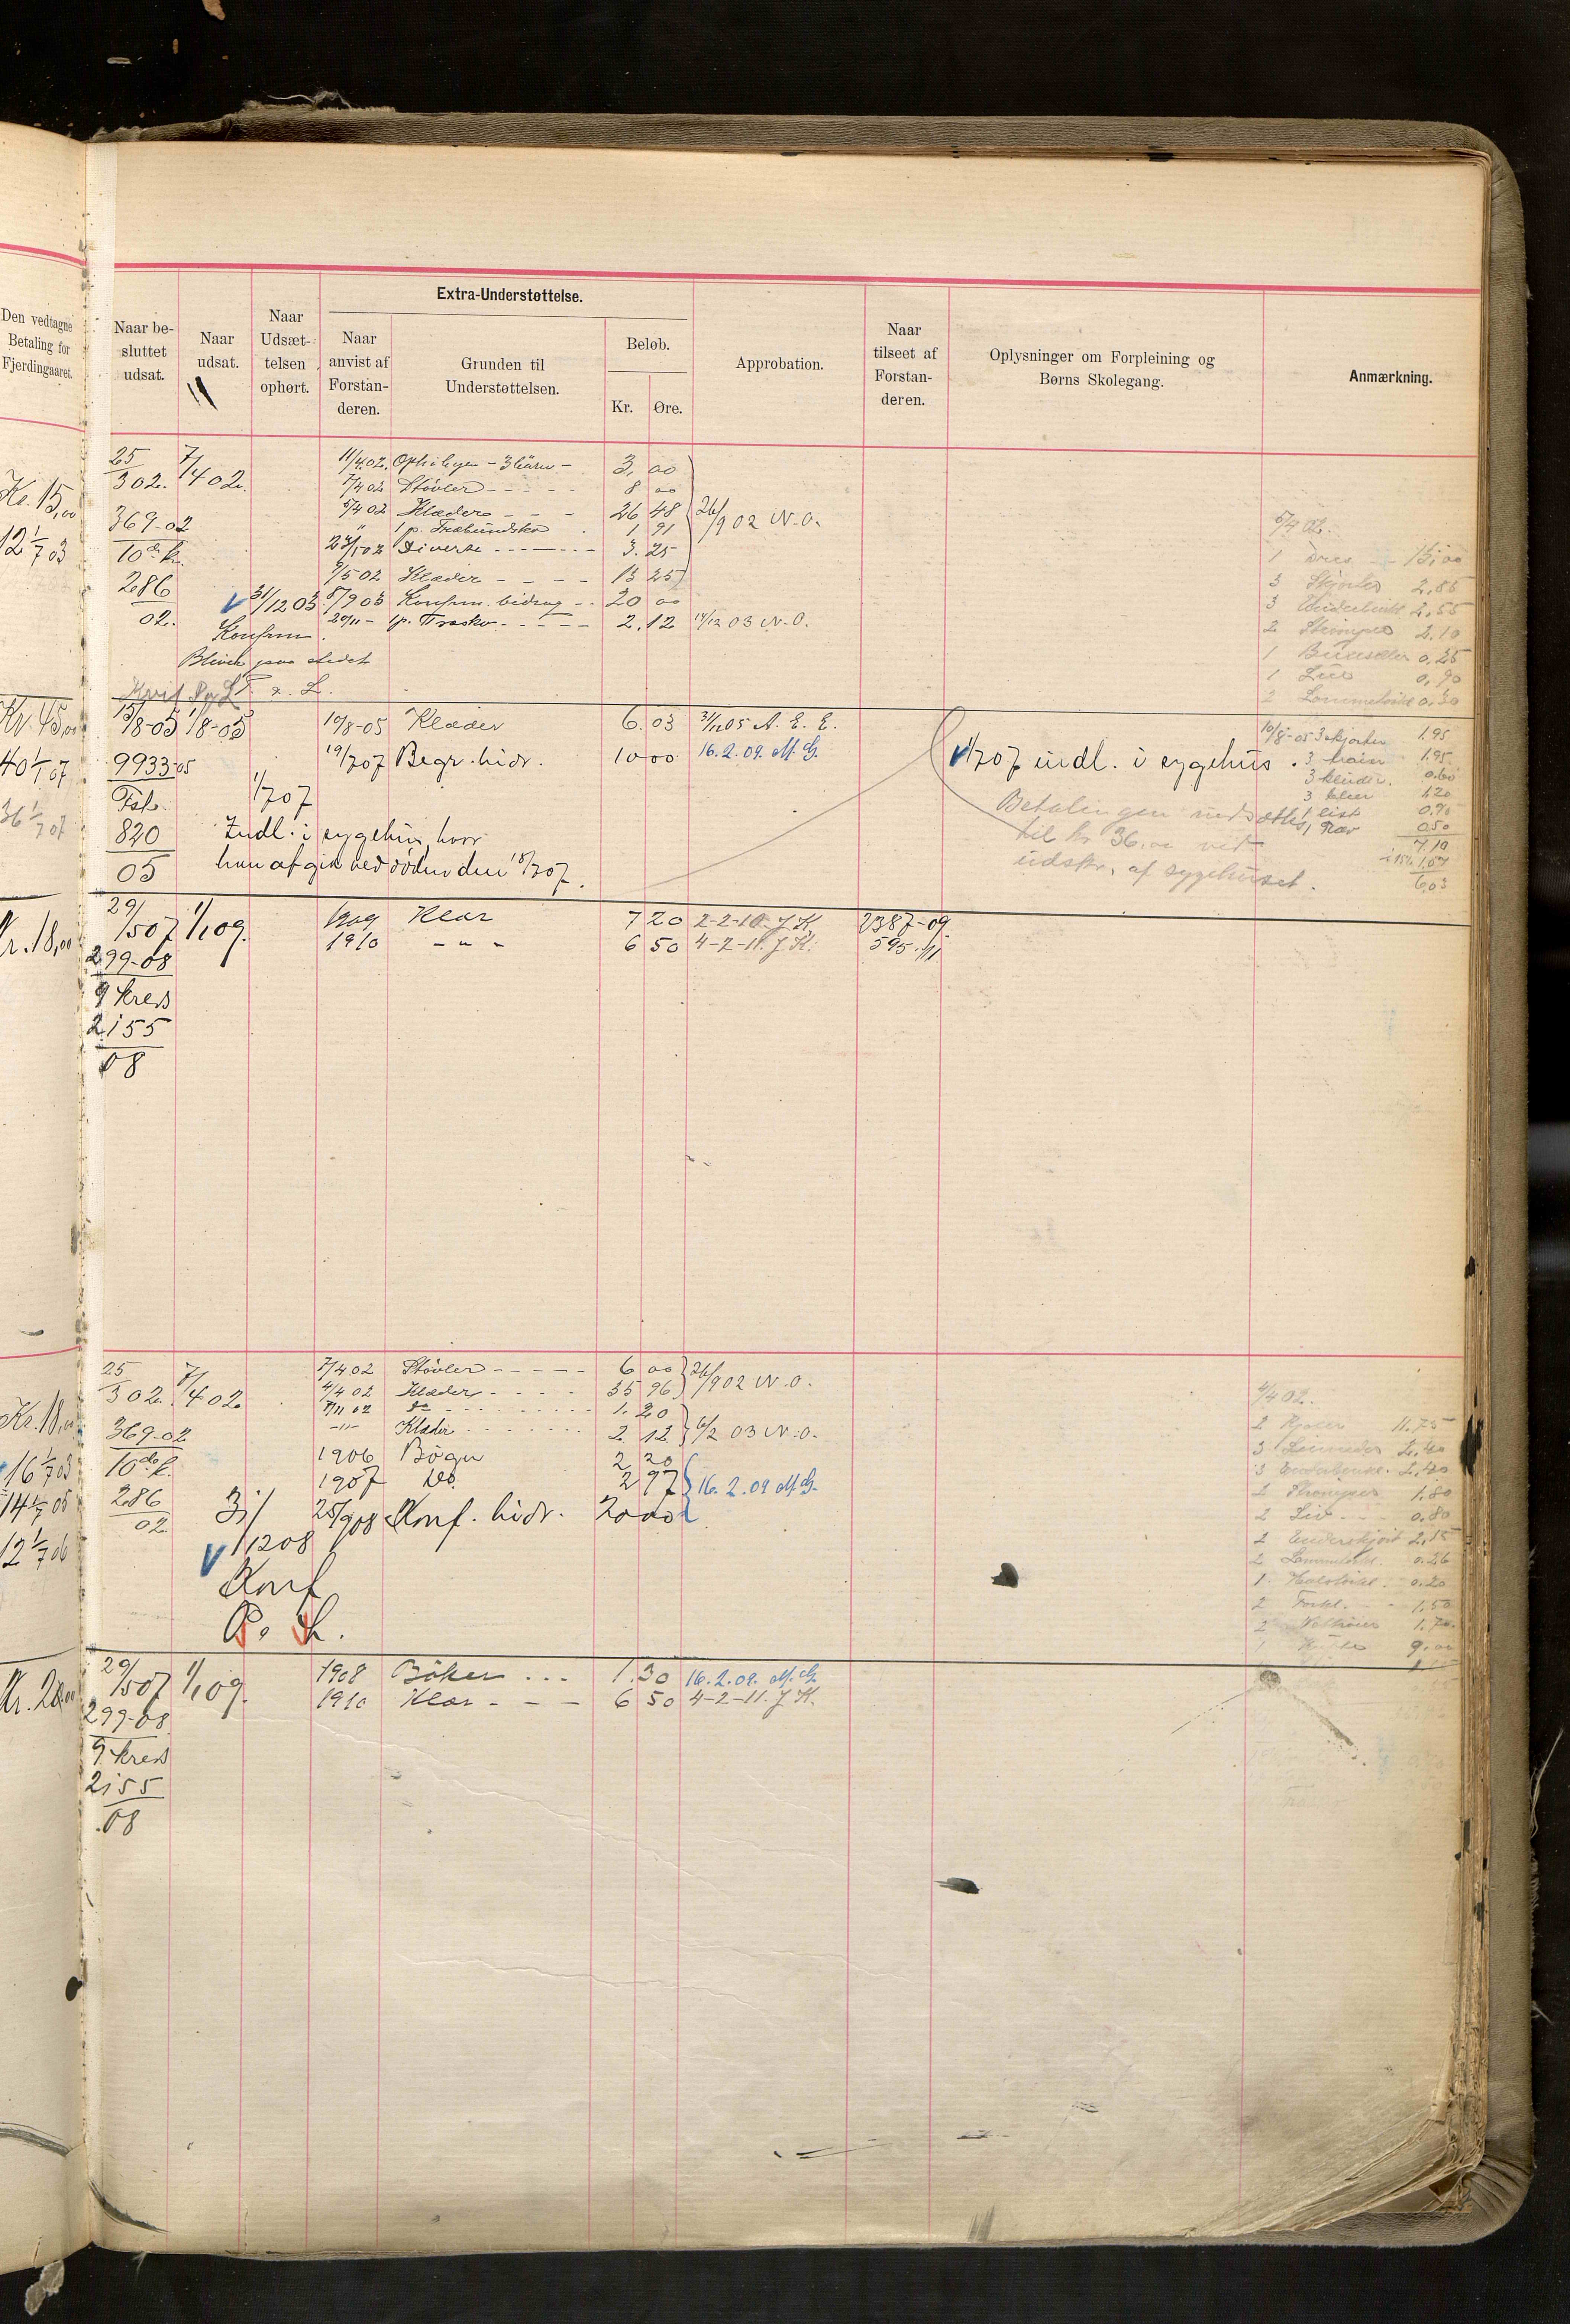 Den vedtagne
Betaling for
Fjerdingaaret.
Naar be-
sluttet
udsat.
Naar
udsat.
Naar
Udsæt-
telsen
ophørt.
Extra-Understøttelse.
Naar
anvist af
Forstan-
deren.
Grunden til
Understøttelsen.
Beløb.
Kr. Øre.
Approbation.
Naar
tilseet af
Forstan-
deren.
Oplysninger om Forpleining og
Børns Skolegang.
Anmærkning.
Kr. 15,00
12 1/7 03
25/3 02. 7/4 02.
369-02
10de k.
286
02.
31/12 03
Konfirm.
Bliver paa stedet
11/4 02. 3. 00
7/4 02 Støvler 8 00
5/4 02 Klæder 26 48
" 1 p. 1. 91
Diverse 3. 25
9/5 02 Klæder 13 25
26/9 02 N.O.
5/9 03 Konfirm. bidrag 20 00
20/11 - 1 p. Træsko 2. 12 14/12 03 N.O.
5/4 02.
1 Dres 15,00
3 Skjorter 2.85
3 2.55
2 Strømper 2.10
1 0.25
1 0.90
2 0.30
Kr. 45,00
40 1/1 07
36 1/7 07
15/8-05 1/8-05
9933-05
Fsk.
820
05
1/7 07
Indl. i sygehus, hvor
han afgik ved døden den 18/7 07.
10/8-05 Klæder 6. 03 31/12 05 A. E. E.
19/7 07 Begr. bidr. 10 00 16.2.09. M.G.
1/7 07 indl. i sygehus.
Betalingen nedsættes
til kr 36.00 ved
udskr. af sygehuset.
10/8-05 3 skjorter 1.95
3 1.95
3 0.60
3 1.20
1 0.90
1 0.50
7.10
15% 1.07
6.03
Kr. 18,00
29/5 07 1/1 09.
299-08
9 kreds
2155
08
1909 Klær 7 20 2-2-10. J.K. 2387-09.
1910 - " - 6 50 4-2-11. J.K. 595/11
Kr. 18,00
16 1/7 03
14 1/7 05
12 1/7 06
25/3 02. 7/4 02
369-02
10de k.
286
02.
31/12 08
Konf.
P. L.
7/4 02 Støvler 6 00
4/4 02 Klæder 35 96
26/9 02 N.O.
7/11 02 do 1. 20
-"- Klæder 2 12
6/2 03 N.O.
1906 Bøger 2 20
1907 Do. 2 97
16.2.09 M.G.
25/9 08 Konf. bidr. 20 00
4/4 02.
2 Kjoler 11.75
3 2.40
3 2.40
2 Strømper 1.80
2 Liv 0.80
2 Underskjørt 2.15
2 0.26
1 0.20
2 Forkl. 1.50
2 1.70
1 9.00
Kr. 20,00
29/5 07 1/1 09.
299-08
9 kreds
2155
08
1908 Bøker 1. 30 16.2.09. M.G.
1910 Klær 6 50 4-2-11. J.K.